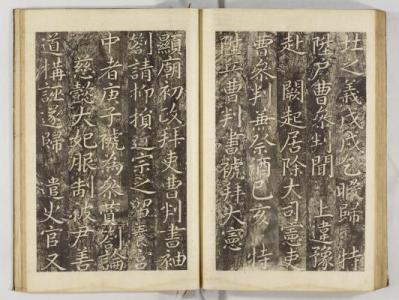 社之義戊戌乞暇歸 特
陞戶曹參判聞 上違豫
赴 闕起居除大司憲吏
曹參判兼祭酒己亥 特
陞兵曹判書號拜大憲
顯廟初改拜吏曹判書袖
劄請抑損 宗之
中者庚子 爲 論
慈懿大妃服制被尹善
道搆誣遂歸 遣史官又